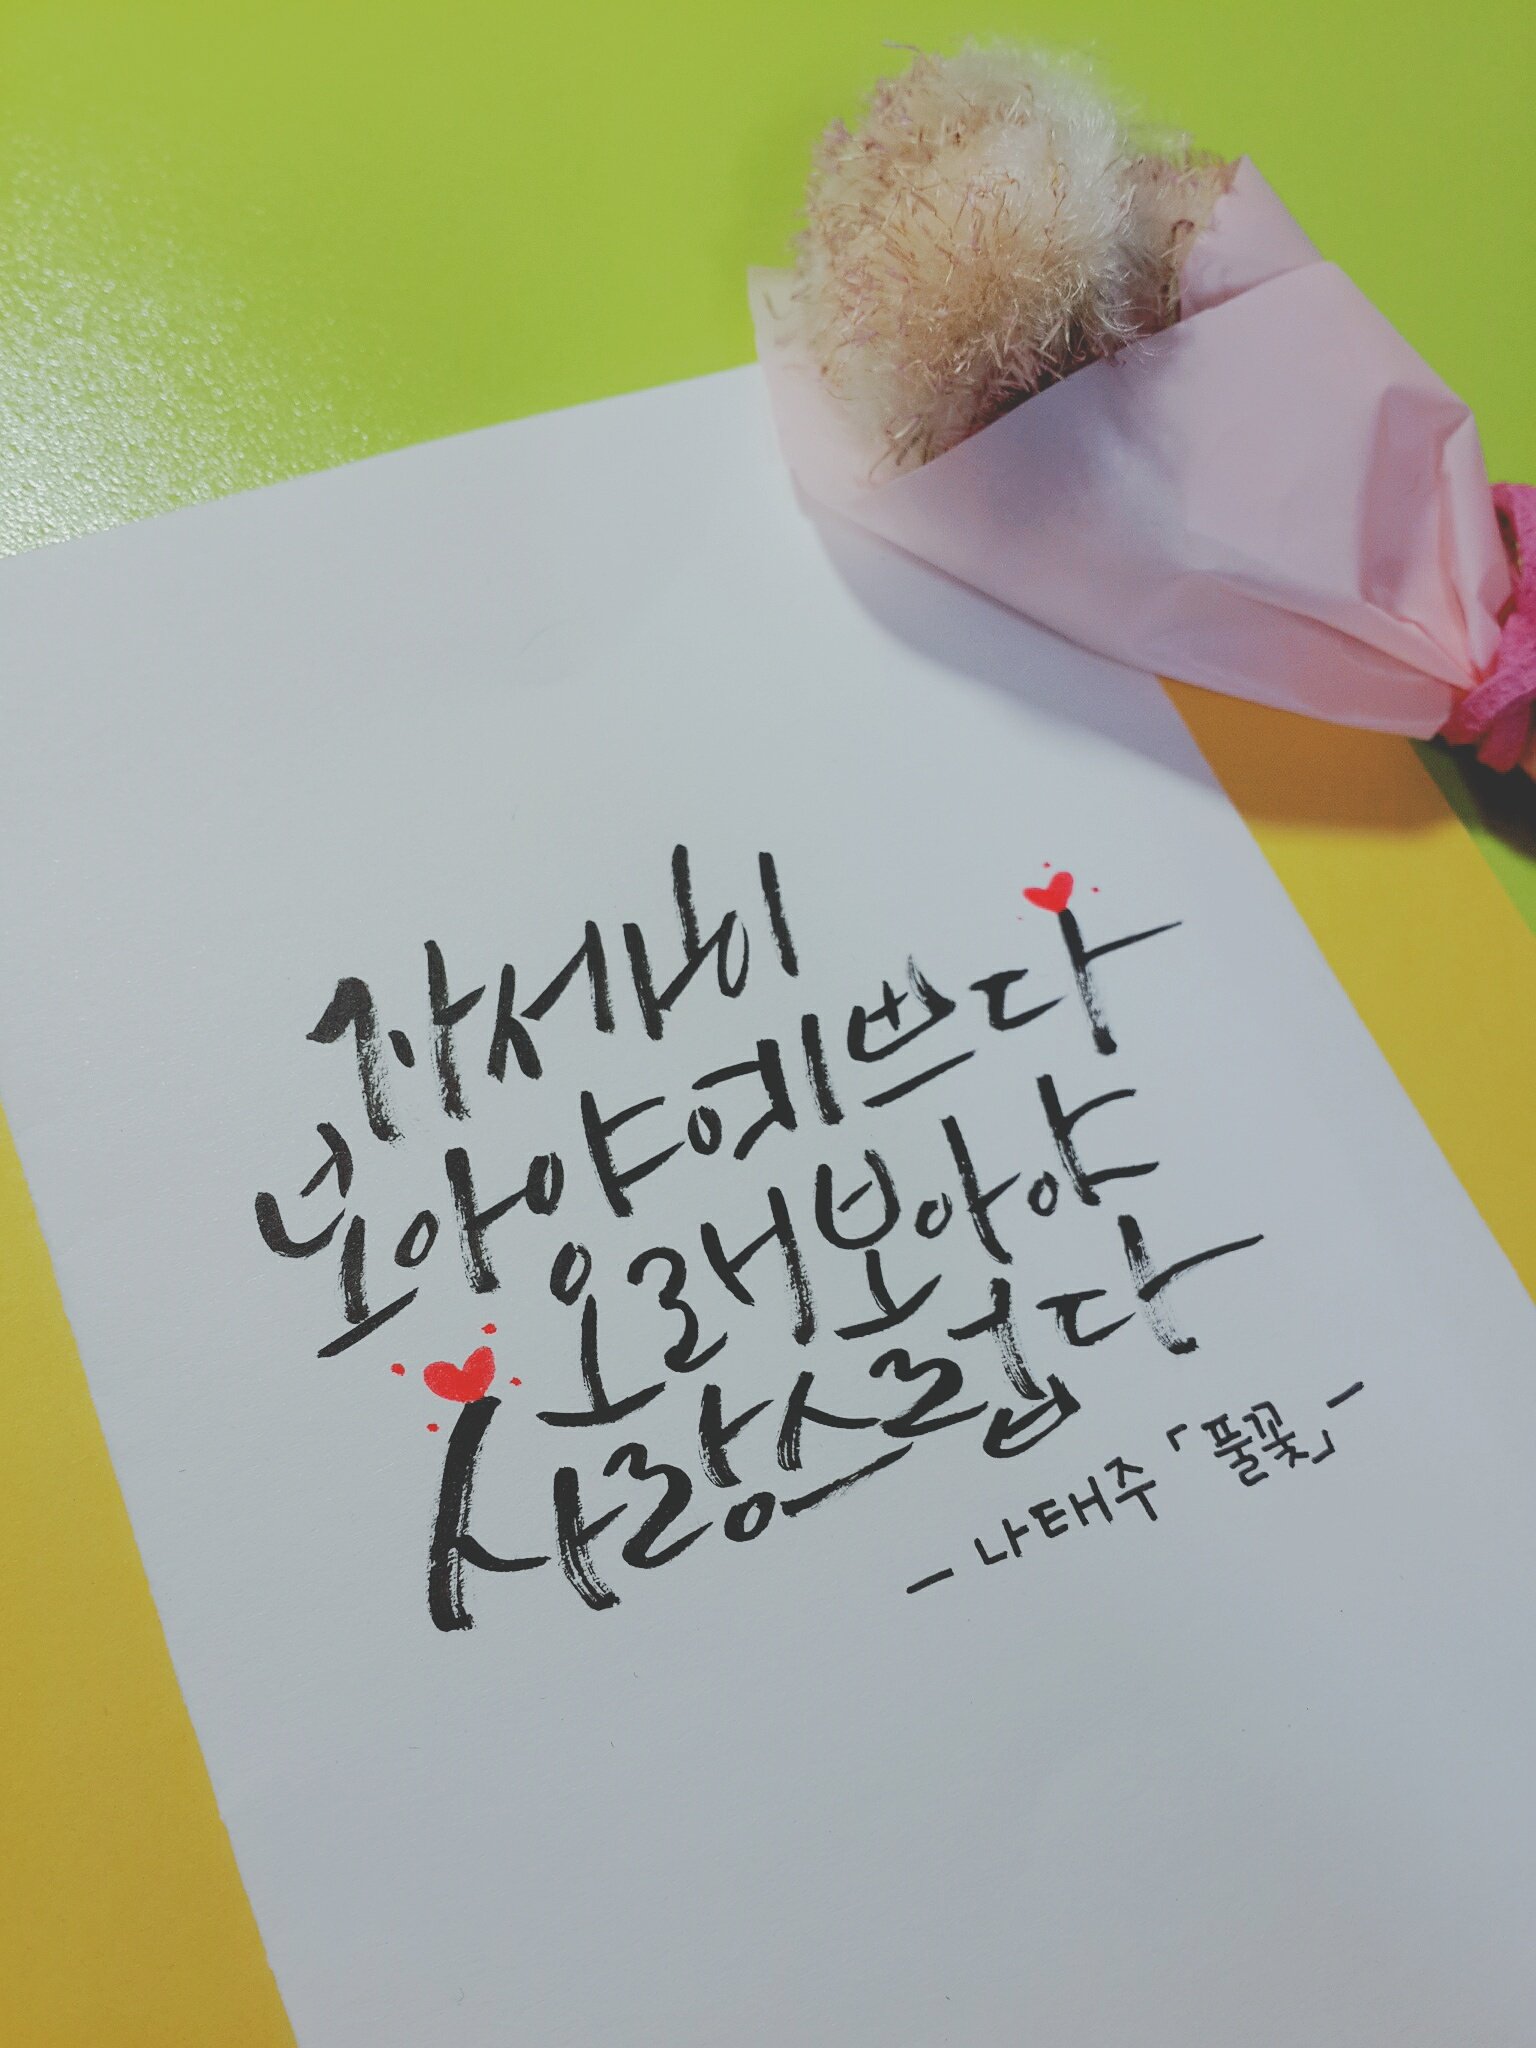 자세히
보아야 예쁘다
오래 보아야
사랑스럽다
- 나태주 「풀꽃」 -